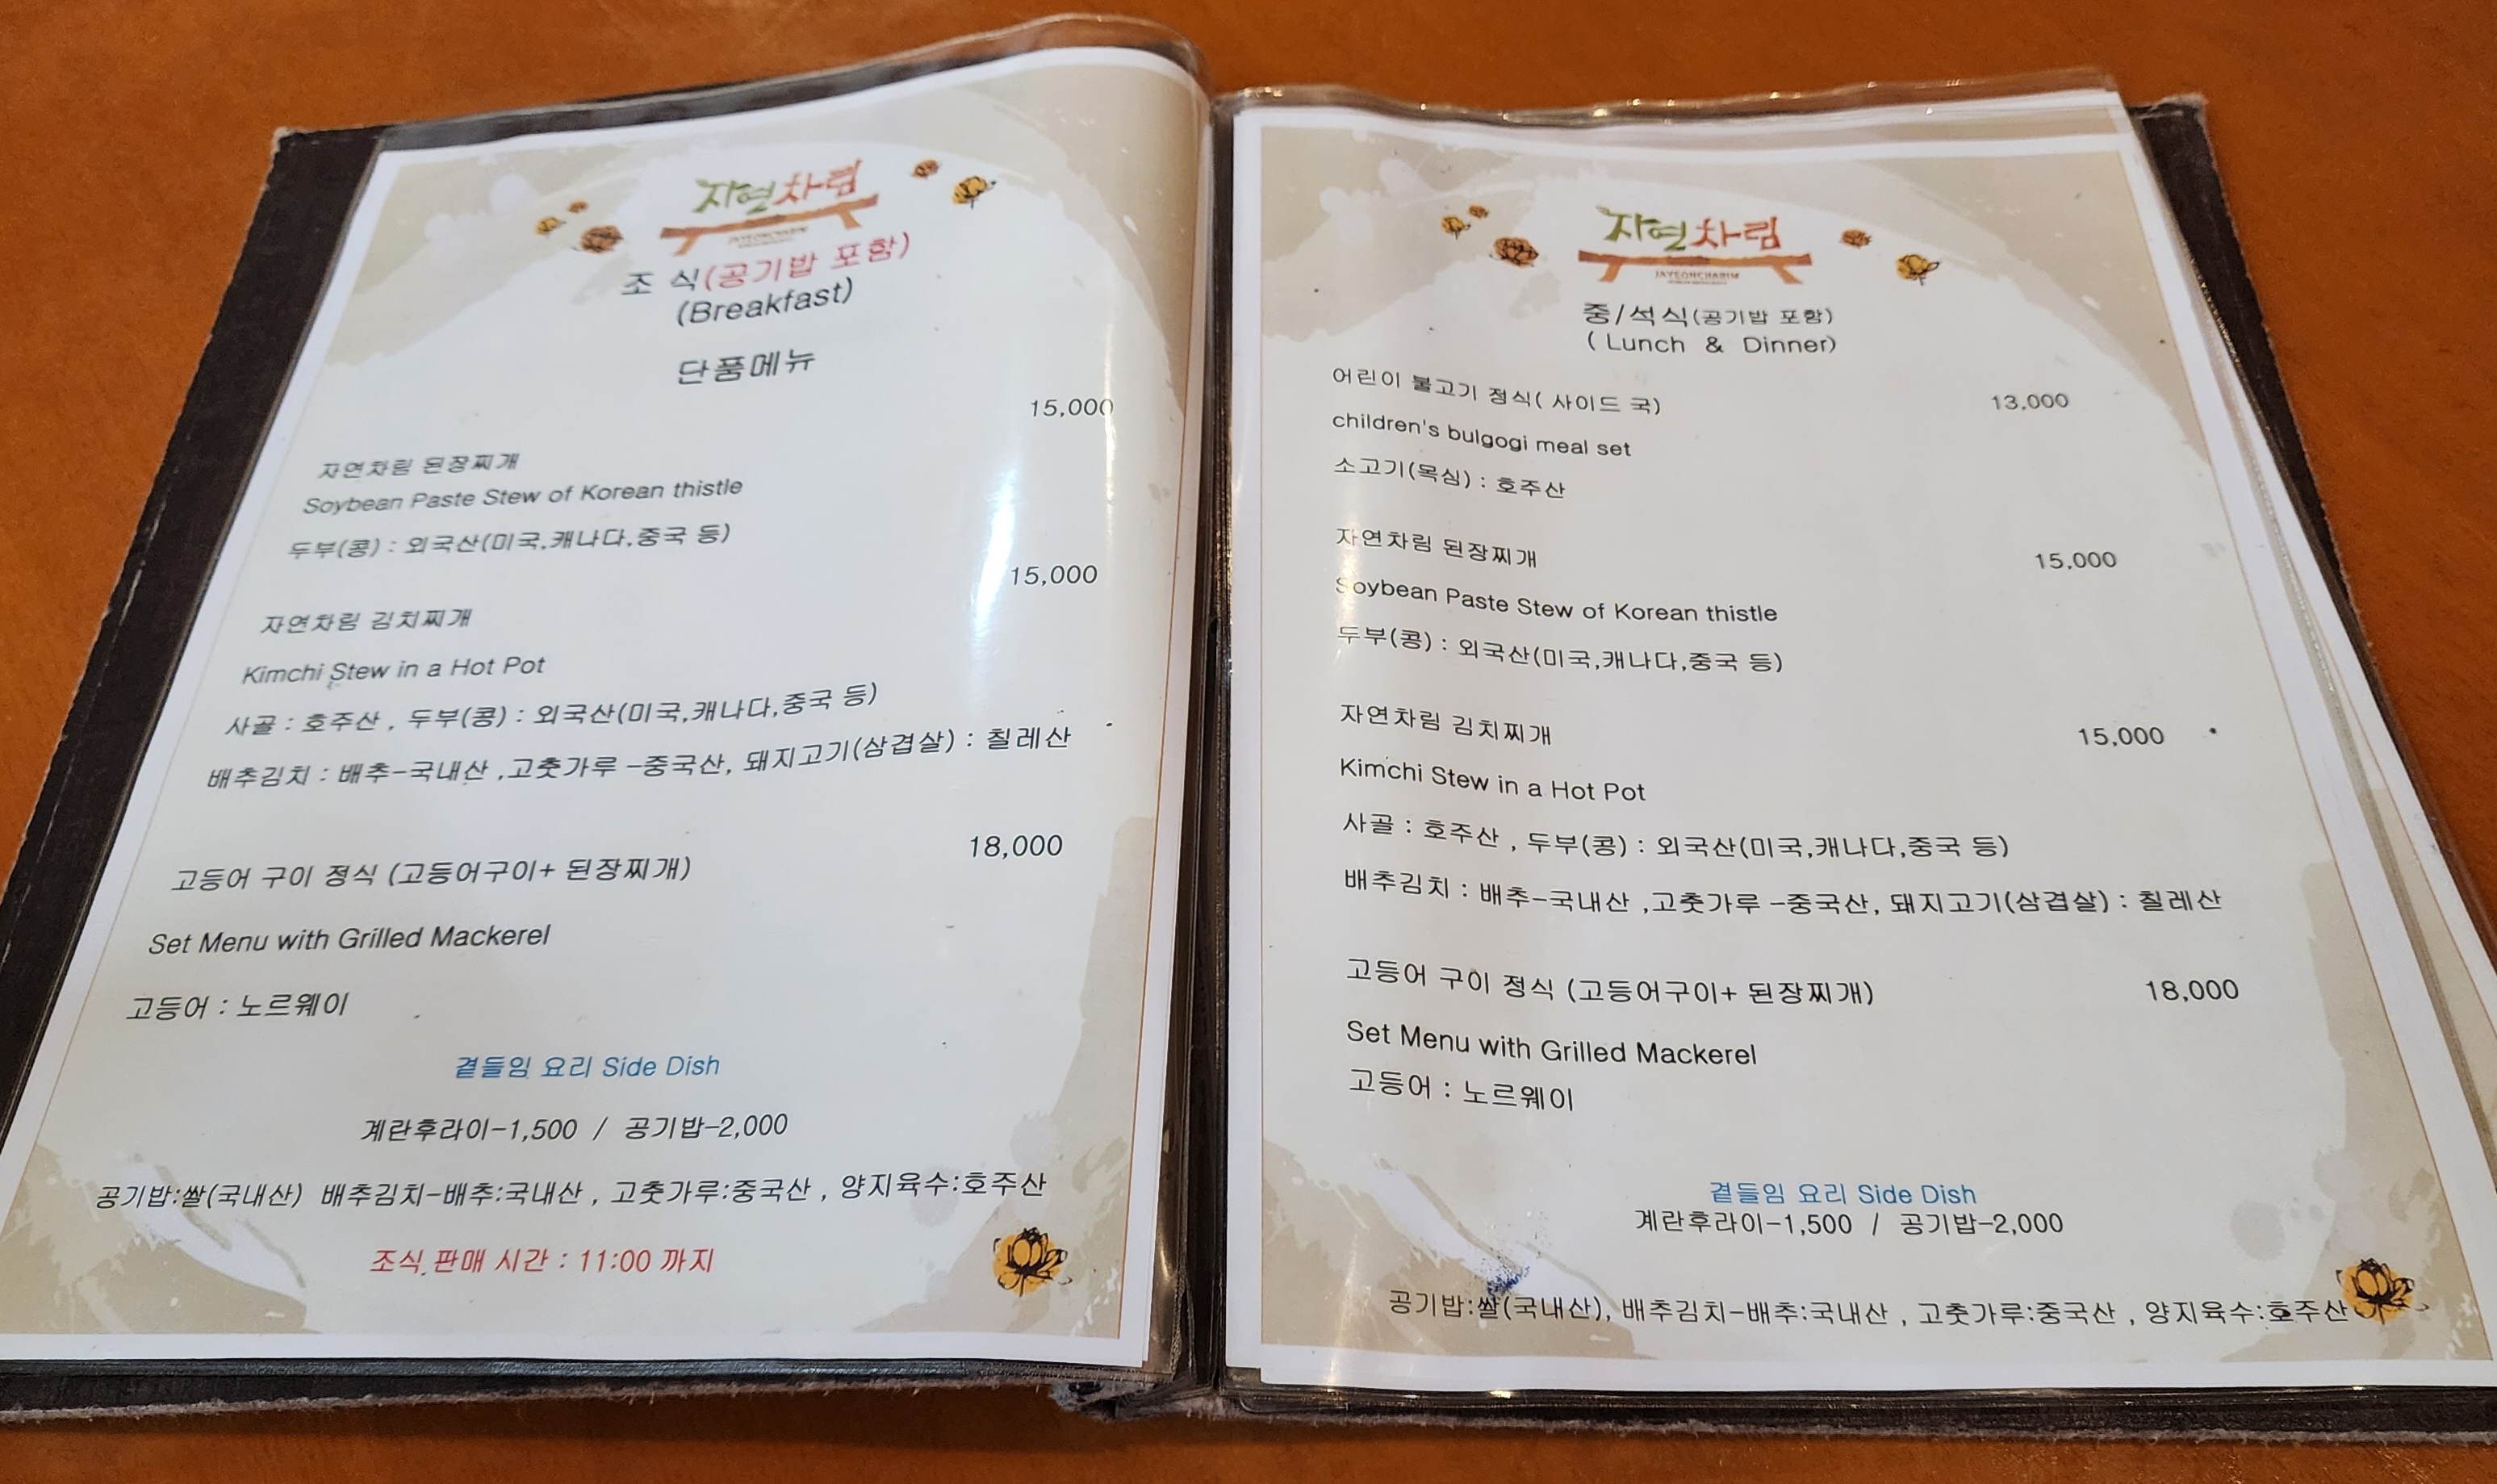 자연차림
조 식(공기밥 포함)
(Breakfast)
단품메뉴
15,000
자연차림 된장찌개
Soybean Paste Stew of Korean thistle
두부(콩) : 외국산(미국,캐나다,중국 등)
15,000
자연차림 김치찌개
Kimchi Stew in a Hot Pot
사골 : 호주산 , 두부(콩) : 외국산(미국,캐나다,중국 등)
배추김치 : 배추-국내산 ,고춧가루 -중국산, 돼지고기(삼겹살) : 칠레산
18,000
고등어 구이 정식 (고등어구이+ 된장찌개)
Set Menu with Grilled Mackerel
고등어 : 노르웨이
곁들임 요리 Side Dish
계란후라이-1,500 / 공기밥-2,000
공기밥:쌀(국내산) 배추김치-배추:국내산 , 고춧가루:중국산 , 양지육수:호주산
조식 판매 시간 : 11:00 까지
자연차림
JAYEONCHARIM
중/석식(공기밥 포함)
( Lunch & Dinner)
어린이 불고기 정식( 사이드 국) 13,000
children's bulgogi meal set
소고기(목심) : 호주산
자연차림 된장찌개 15,000
Soybean Paste Stew of Korean thistle
두부(콩) : 외국산(미국,캐나다,중국 등)
자연차림 김치찌개 15,000
Kimchi Stew in a Hot Pot
사골 : 호주산 , 두부(콩) : 외국산(미국,캐나다,중국 등)
배추김치 : 배추-국내산 ,고춧가루 -중국산, 돼지고기(삼겹살) : 칠레산
고등어 구이 정식 (고등어구이+ 된장찌개) 18,000
Set Menu with Grilled Mackerel
고등어 : 노르웨이
곁들임 요리 Side Dish
계란후라이-1,500 / 공기밥-2,000
공기밥:쌀(국내산), 배추김치-배추:국내산 , 고춧가루:중국산 , 양지육수:호주산